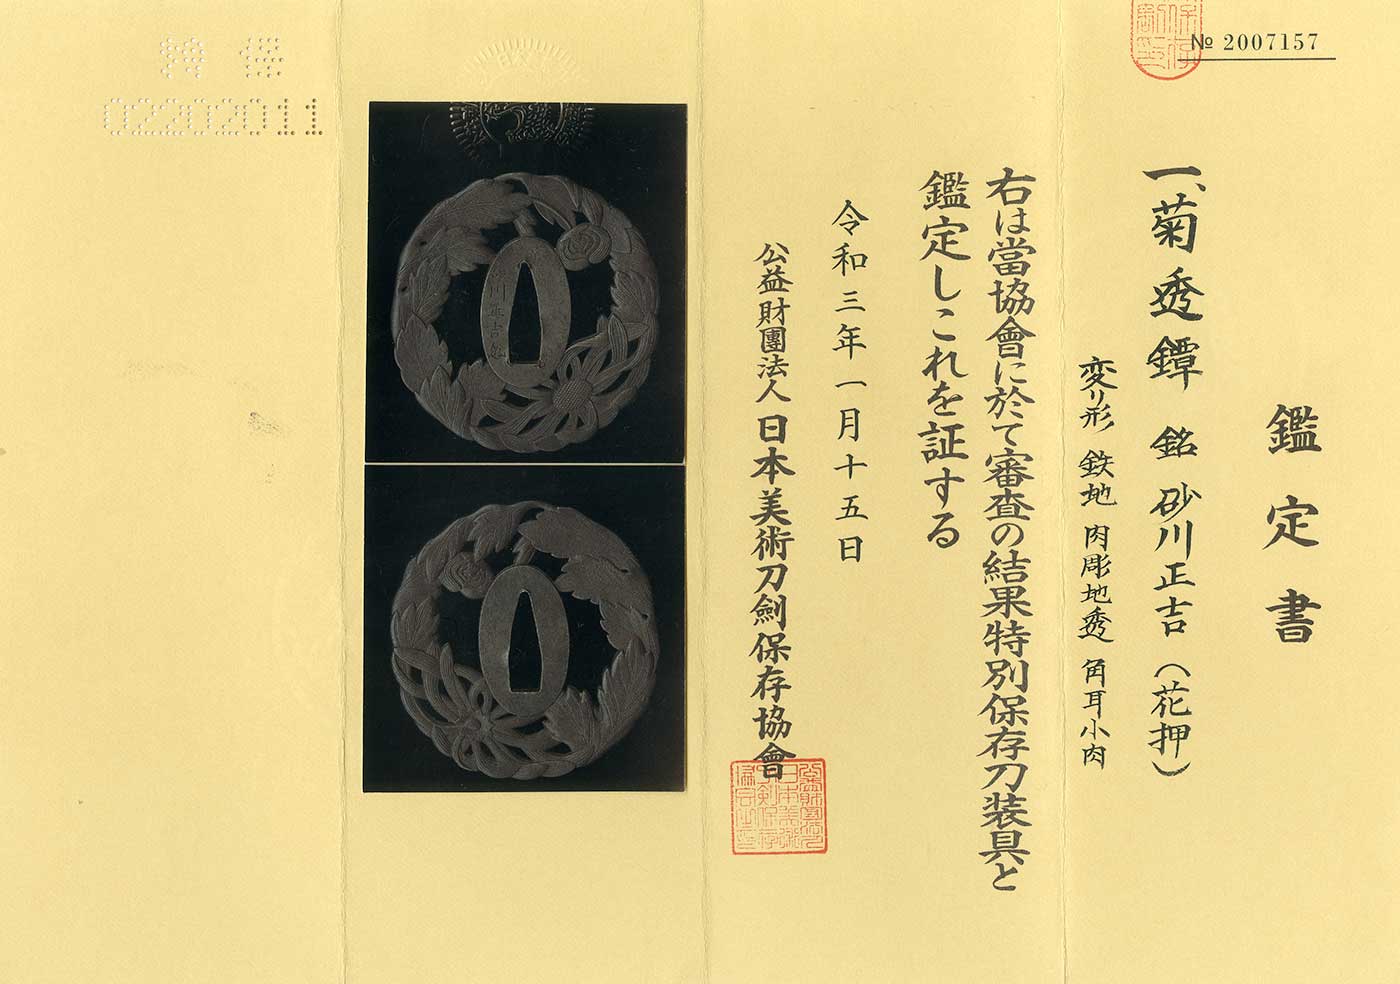 № 2007157
鑑定書
一、菊透鐔 銘 砂川正吉（花押）
変り形 鉄地 肉彫地透 角耳小肉
右は當協會に於て審査の結果特別保存刀装具と
鑑定しこれを証する
令和三年一月十五日
公益財團法人 日本美術刀劍保存協會
特保
02202011